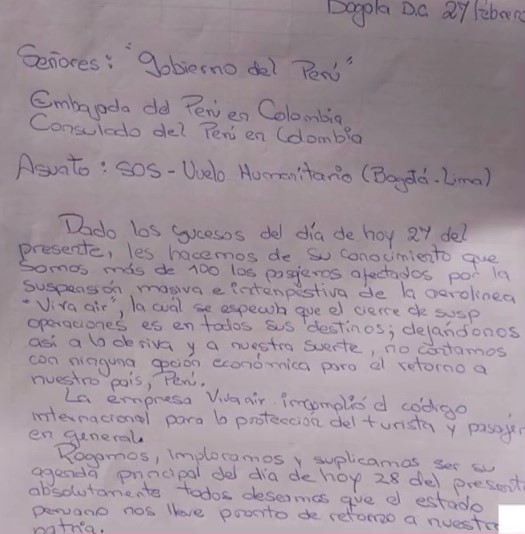 Bogota D.C. 27 febrero
Señores: "Gobierno del Perú"
Embajada del Perú en Colombia
Consulado del Perú en Colombia
Asunto: SOS - Vuelo Humanitario (Bogotá-Lima)
Dado los sucesos del día de hoy 27 del
presente, les hacemos de su conocimiento que
somos más de 100 los pasjeros afectados por la
suspensión masiva e intenpestiva de la aerolinea
"Viva air", la cuál se especula que el cierre de susp
operaciones es en todos sus destinos; dejándonos
asi a la deriva y a nuestra suerte, no contamos
con ninguna opción económica para el retorno a
nuestro país, Perú.
La empresa Viva air incomplió el código
internacional para la protección del turista y pasajer
en general.
Rogamos, imploramos y suplicamos ser su
agenda principal del día de hoy 28 del present
absolutamente todos deseamos que el estado
peruano nos lleve pronto de retorno a nuestra
patria.